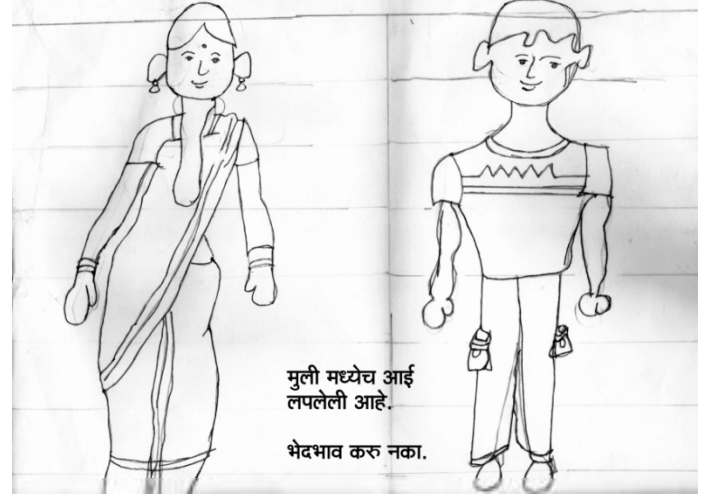 मुली मध्येच आई
लपलेली आहे.
भेदभाव करु नका.